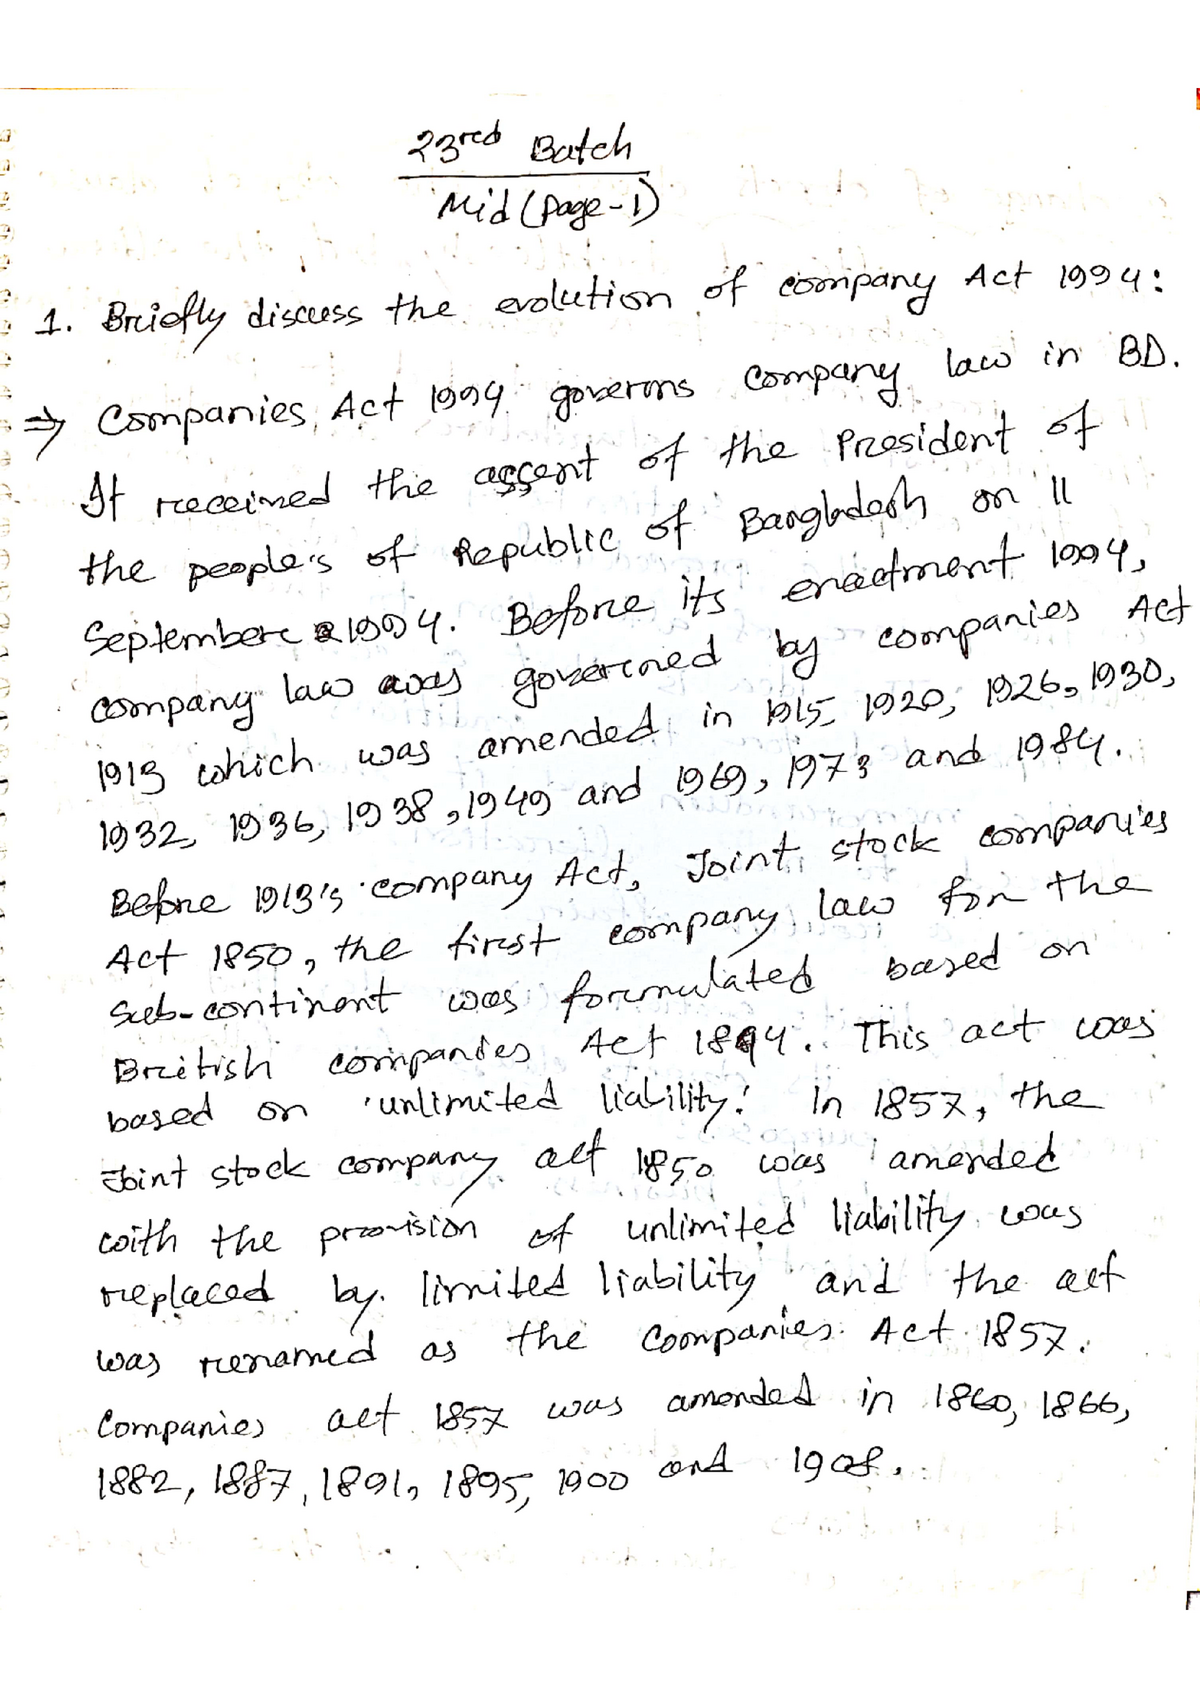 23red Batch
Mid (page-1)
1. Briefly discuss the evolution of company Act 1994:
⇒ Companies Act 1994 governs company law in BD.
It received the assent of the President of
the people's of Republic of Bangladesh on 11
September 1994. Before its enactment 1994,
company law was governed by companies Act
1913 which was amended in 1915, 1920, 1926, 1930,
1932, 1936, 1938, 1949 and 1969, 1973 and 1984.
Before 1913's company Act, Joint stock companies
Act 1850, the first company law for the
sub-continent was formulated based on
British companies Act 1844. This act was
based on 'unlimited liability.' In 1857, the
Joint stock company act 1850 was amended
with the provision of unlimited liability was
replaced by limited liability and the act
was renamed as the Companies Act 1857.
Companies act 1857 was amended in 1860, 1866,
1882, 1887, 1891, 1895, 1900 and 1908.